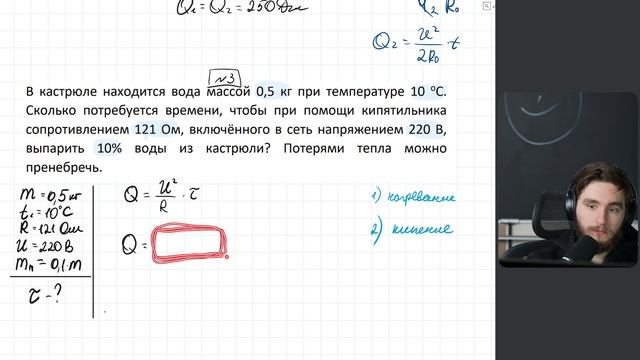 Q₁ = Q₂ = 250 Дж
R₀
Q₂ = U²/2R₀ · t
№3
В кастрюле находится вода массой 0,5 кг при температуре 10 °С.
Сколько потребуется времени, чтобы при помощи кипятильника
сопротивлением 121 Ом, включённого в сеть напряжением 220 В,
выпарить 10% воды из кастрюли? Потерями тепла можно
пренебречь.
m = 0,5 кг
t₁ = 10°C
R = 121 Ом
U = 220 В
mₙ = 0,1·m
τ - ?
Q = U²/R · τ
Q =
1) нагревание
2) кипение